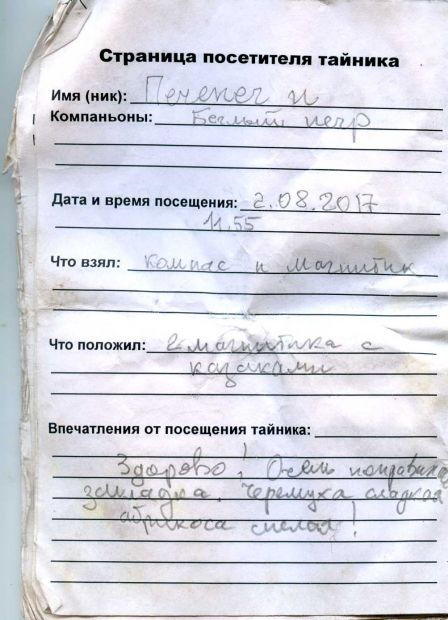 Страница посетителя тайника
Имя (ник): Печенег и
Компаньоны: Беглый негр
Дата и время посещения: 2.08.2017
11.55
Что взял: компас и магнитик
Что положил: 2 магнитика с
казаками
Впечатления от посещения тайника:
Здорово! Очень понравилась
закладка. Черемуха сладкая
абрикоса спелая!